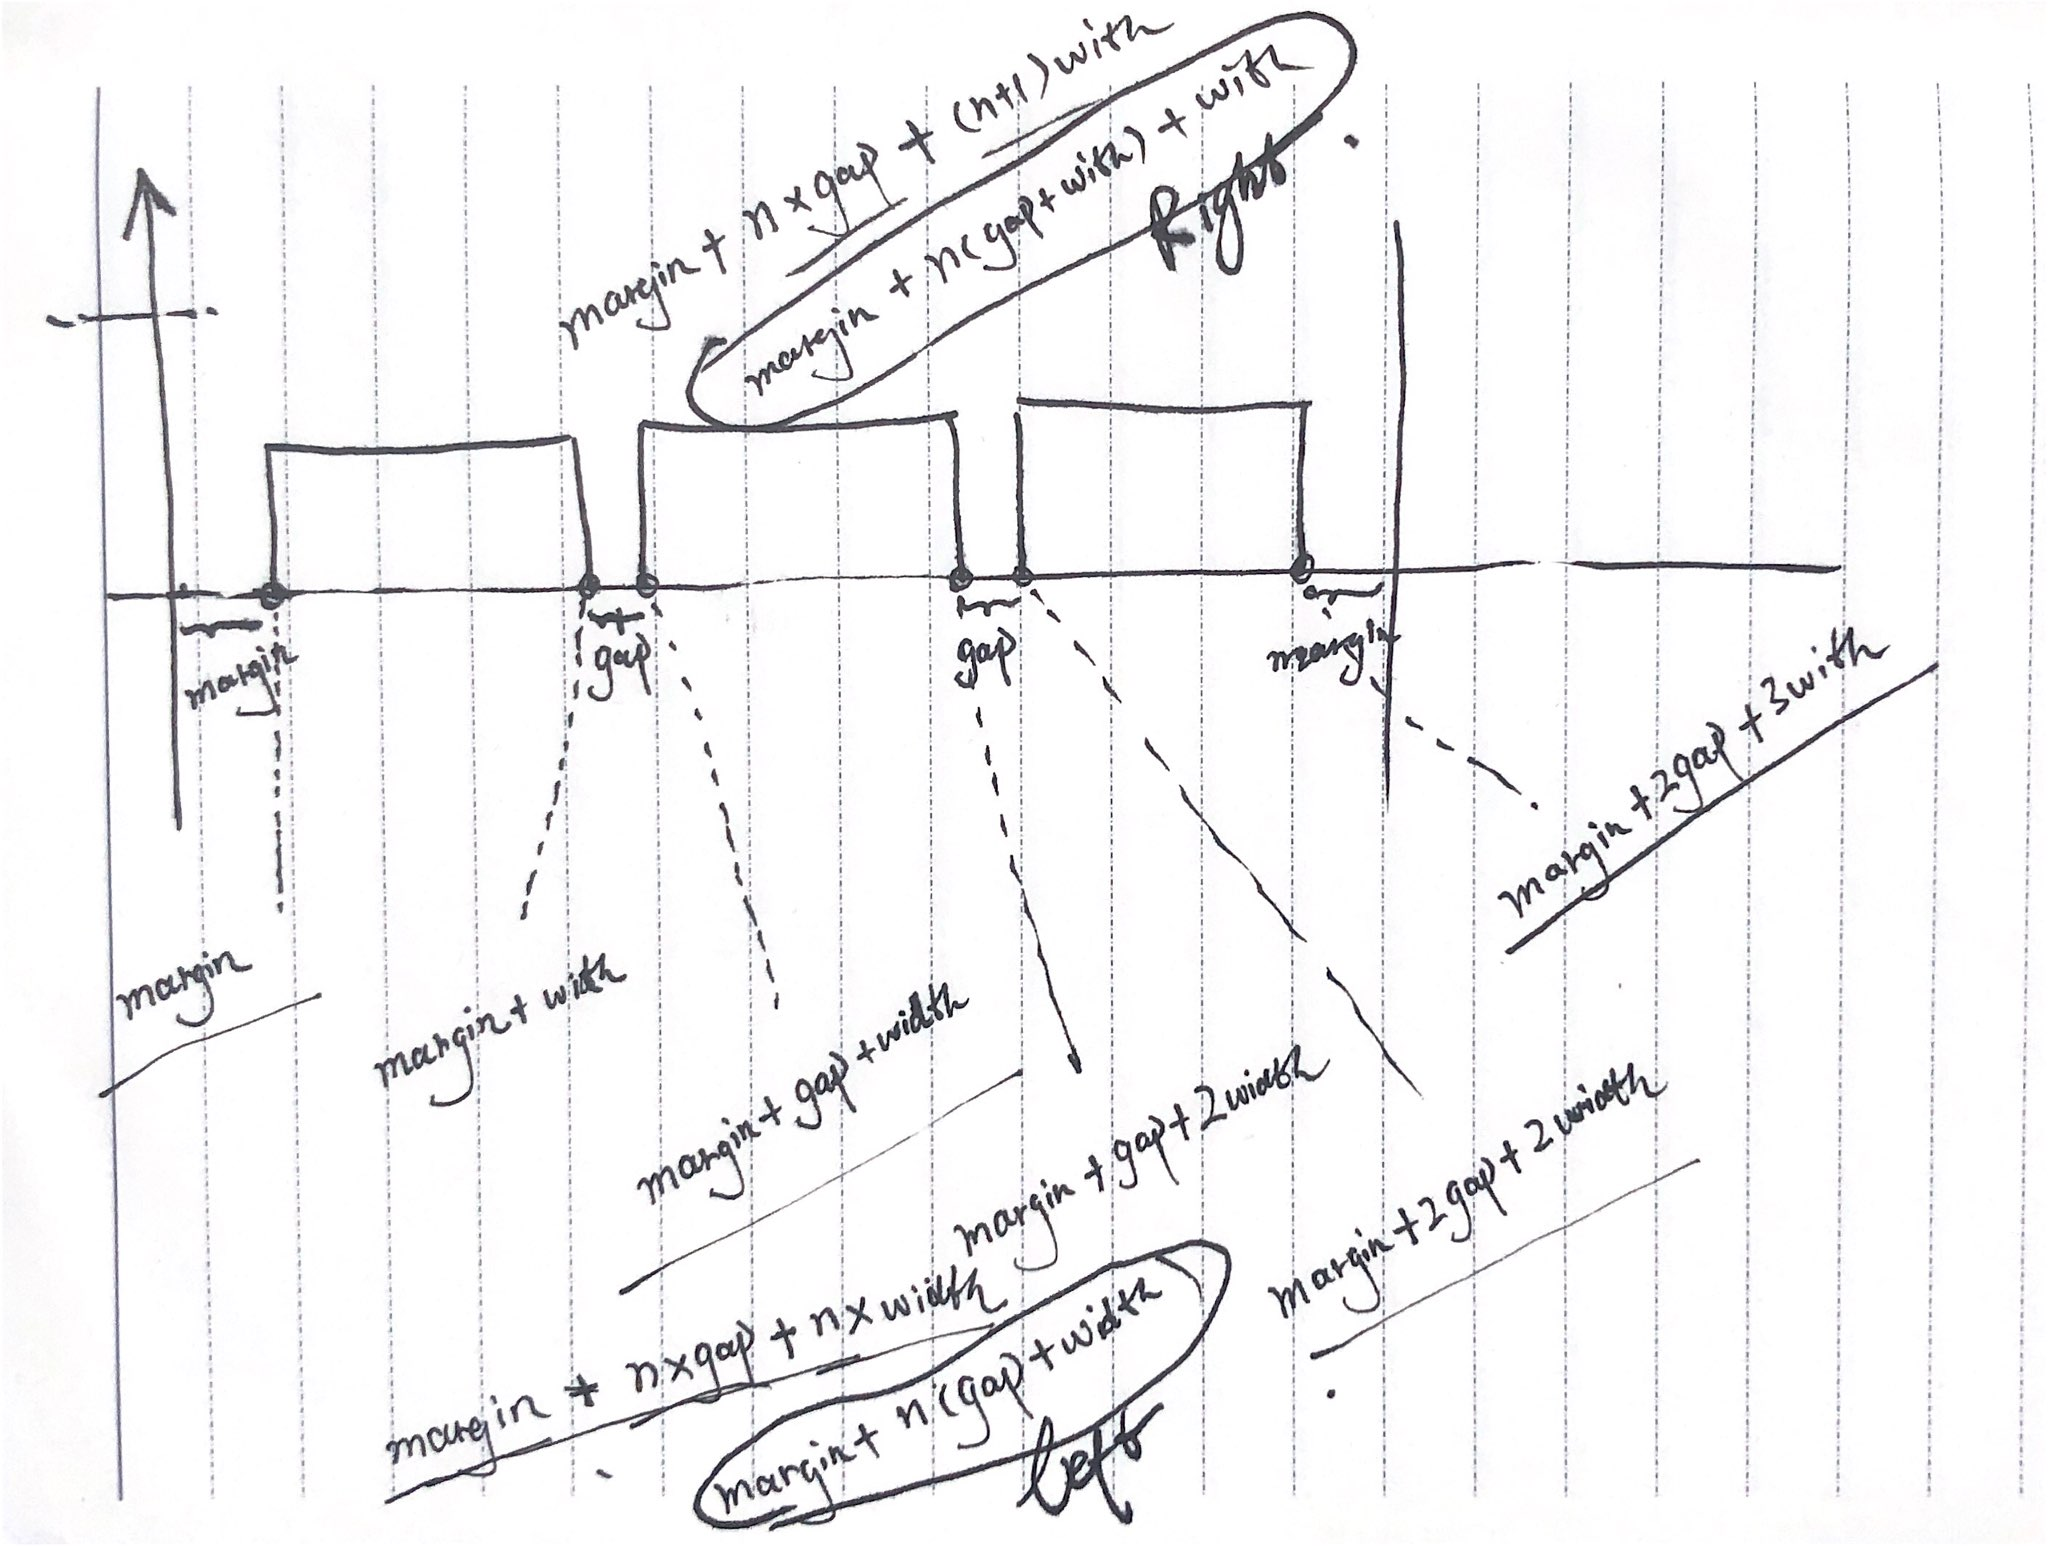 margin + n x gap + (n+1) with
margin + n(gap + with) + with
Right
margin
gap
gap
margin
margin + 2gap + 3with
margin
margin + with
margin + gap + width
margin + gap + 2width
margin + 2gap + 2width
margin + n x gap + n x width
margin + n(gap) + width
left